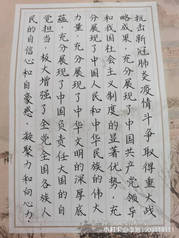 抗击新冠肺炎疫情斗争取得重大战
略成果，充分展现了中国共产党领导
和我国社会主义制度的显著优势，充
分展现了中国人民和中华民族的伟大
力量，充分展现了中华文明的深厚底
蕴，充分展现了中国负责任大国的自
觉担当，极大增强了全党全国各族人
民的自信心和自豪感、凝聚力和向心力